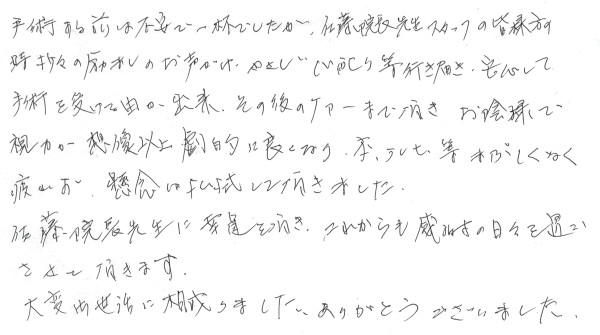 手術する前は不安で一杯でしたが、佐藤院長先生スタッフの皆様方の
時折々の励ましのお声がけ、やさしい心配り等行き届き、安心して
手術を受ける事が出来、その後のケアーまで頂き お陰様で
視力が想像以上劇的に良くなり、本、テレビ等まぶしくなく
疲れず、懸念は払拭して頂きました。
佐藤院長先生に幸運を頂き、これからも感謝の日々を過ご
させて頂きます。
大変お世話に相成りました、ありがとうございました。